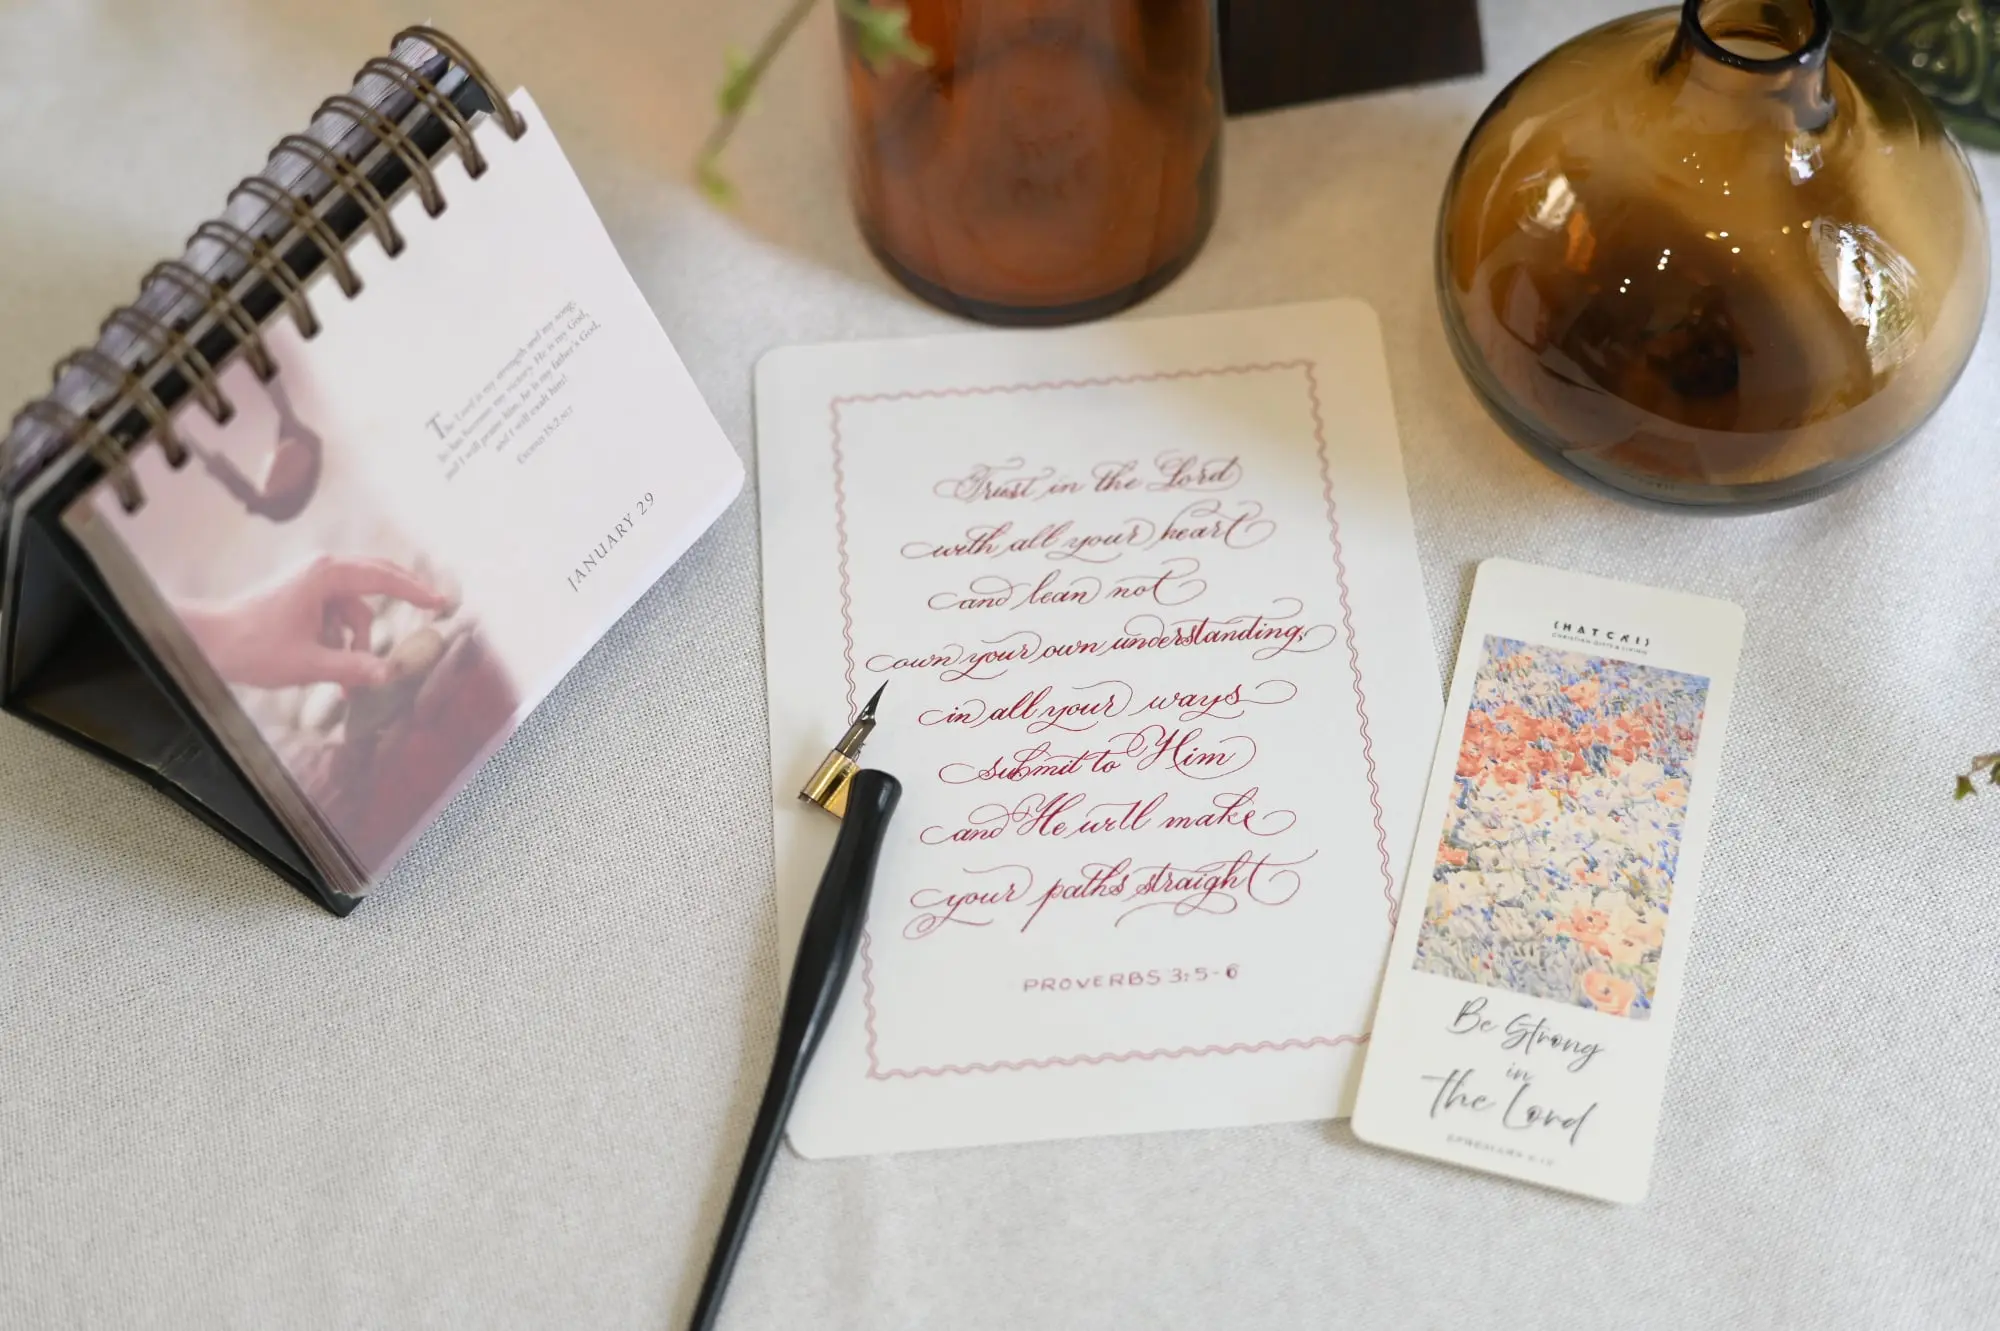 The Lord is my strength and my song;
he has become my victory. He is my God,
and I will praise him; he is my father's God,
and I will exalt him!
EXODUS 15:2, NLT
JANUARY 29
Trust in the Lord
with all your heart
and lean not
own your own understanding,
in all your ways
submit to Him
and He will make
your paths straight
PROVERBS 3:5-6
{HATCRI}
CHRISTIAN GIFTS & LIVING
Be Strong
in
The Lord
EPHESIANS 6:10